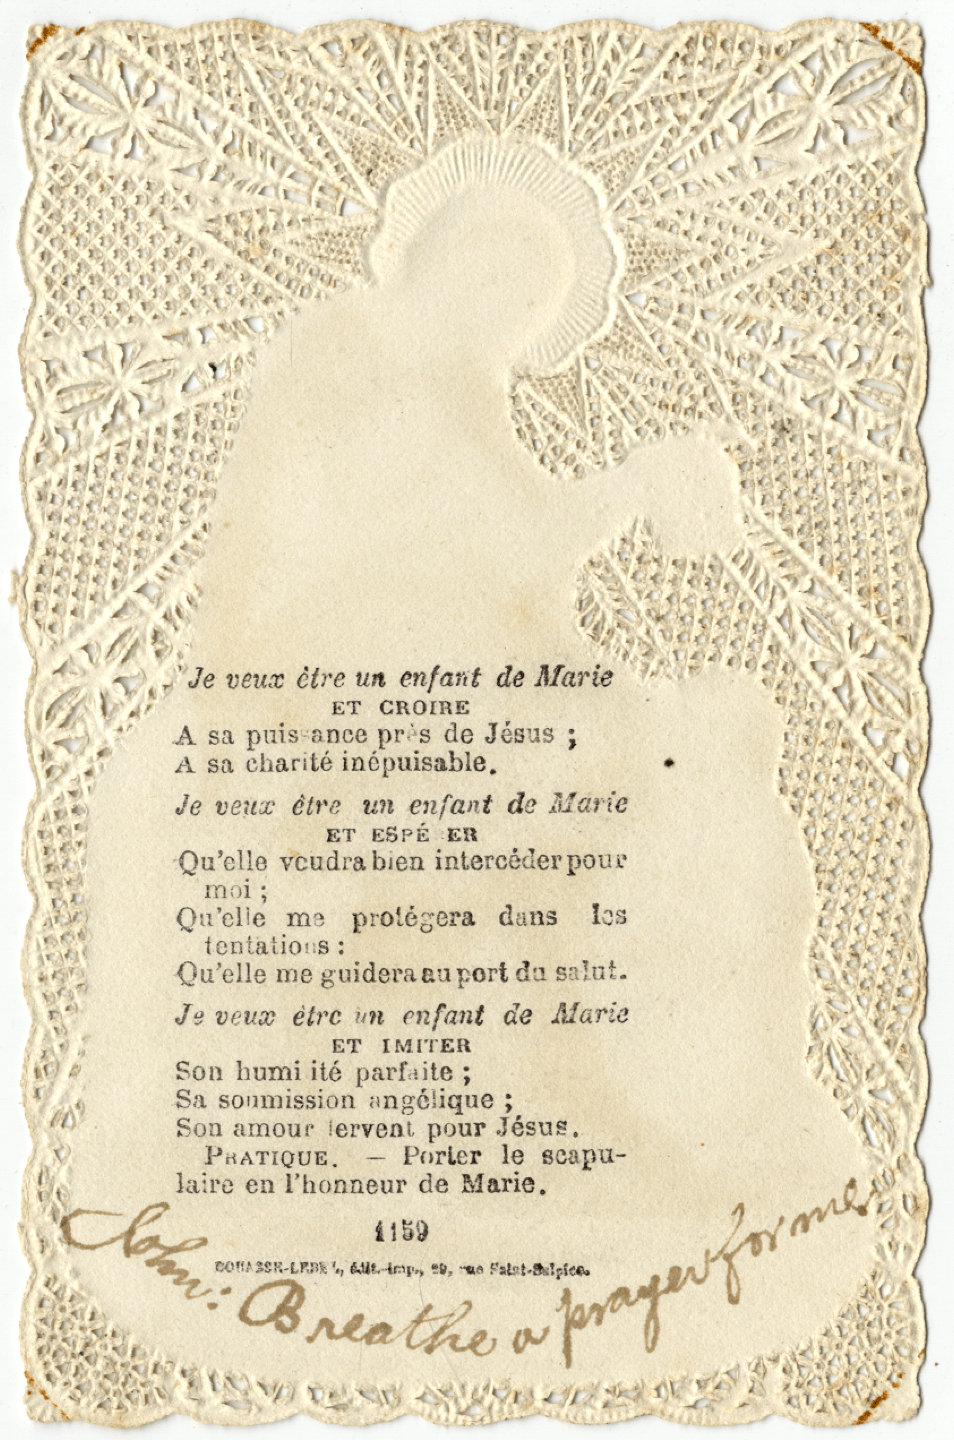 Je veux être un enfant de Marie
ET CROIRE
A sa puissance près de Jésus ;
A sa charité inépuisable.
Je veux être un enfant de Marie
ET ESPÉRER
Qu'elle voudra bien intercéder pour
moi ;
Qu'elle me protégera dans les
tentations :
Qu'elle me guidera au port du salut.
Je veux être un enfant de Marie
ET IMITER
Son humilité parfaite ;
Sa soumission angélique ;
Son amour fervent pour Jésus.
PRATIQUE. — Porter le scapu-
laire en l'honneur de Marie.
1159
BOUASSE-LEBEL, édit.-imp., 29, rue Saint-Sulpice.
John: Breathe a prayer for me